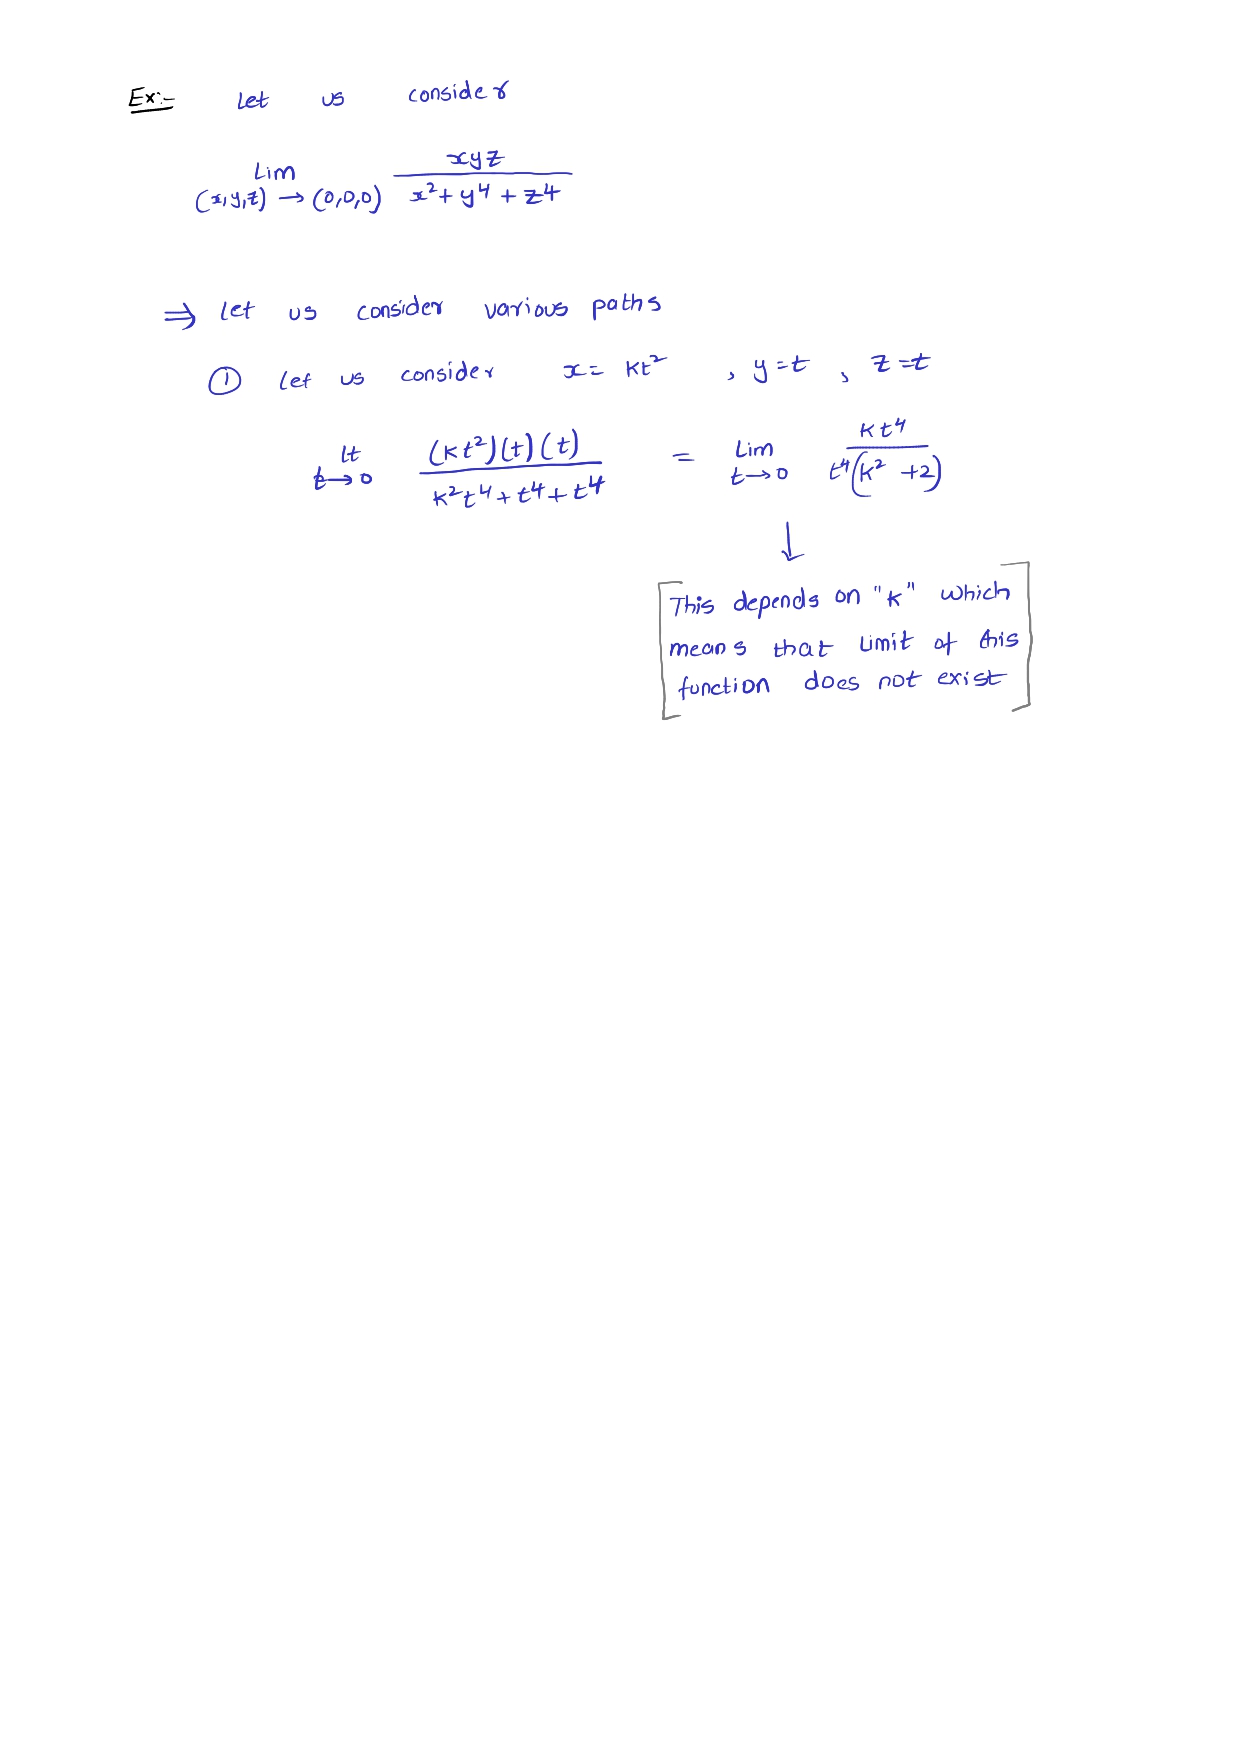 Ex:- Let us consider
Lim (x,y,z) → (0,0,0) xyz / x² + y⁴ + z⁴
⇒ Let us consider various paths
① Let us consider x = kt² , y = t , z = t
lt t→0 (kt²)(t)(t) / k²t⁴ + t⁴ + t⁴ = Lim t→0 kt⁴ / t⁴(k² + 2)
↓
This depends on "k" which
means that limit of this
function does not exist